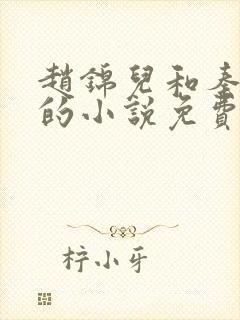 趙錦兒和秦
的小說免費
梓小牙